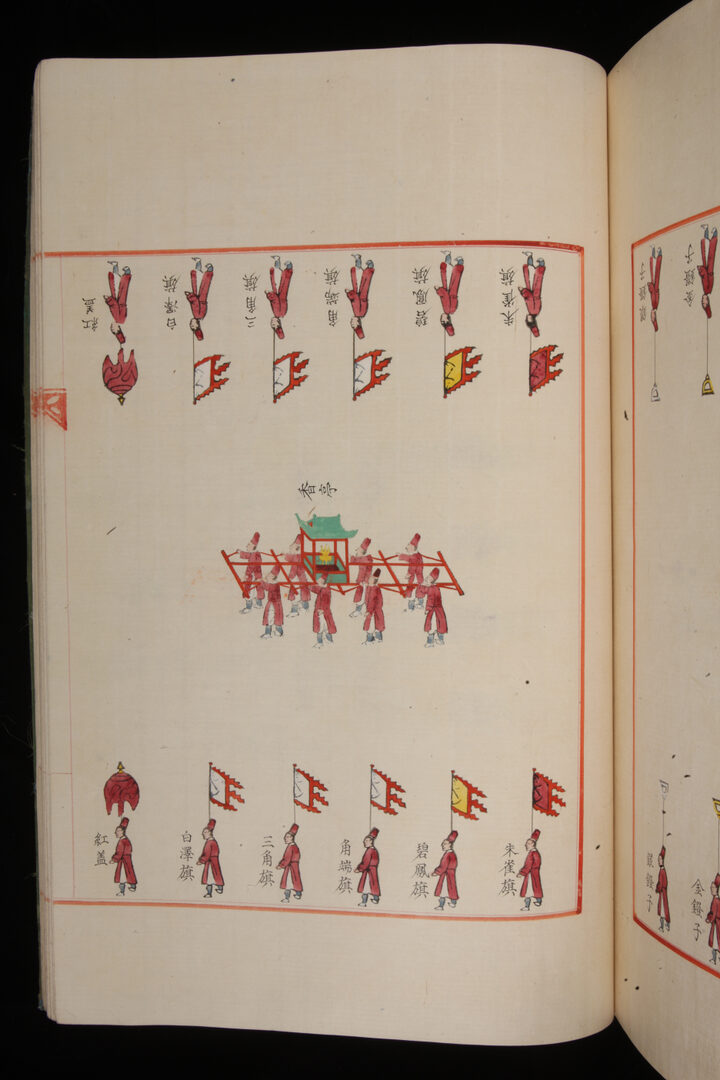 朱雀旗
碧鳳旗
角端旗
三角旗
白澤旗
紅盖
香亭
朱雀旗
碧鳳旗
角端旗
三角旗
白澤旗
紅盖
金鐙子
銀鐙子